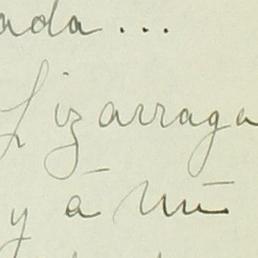 ada ...
Lizarraga
y á mi